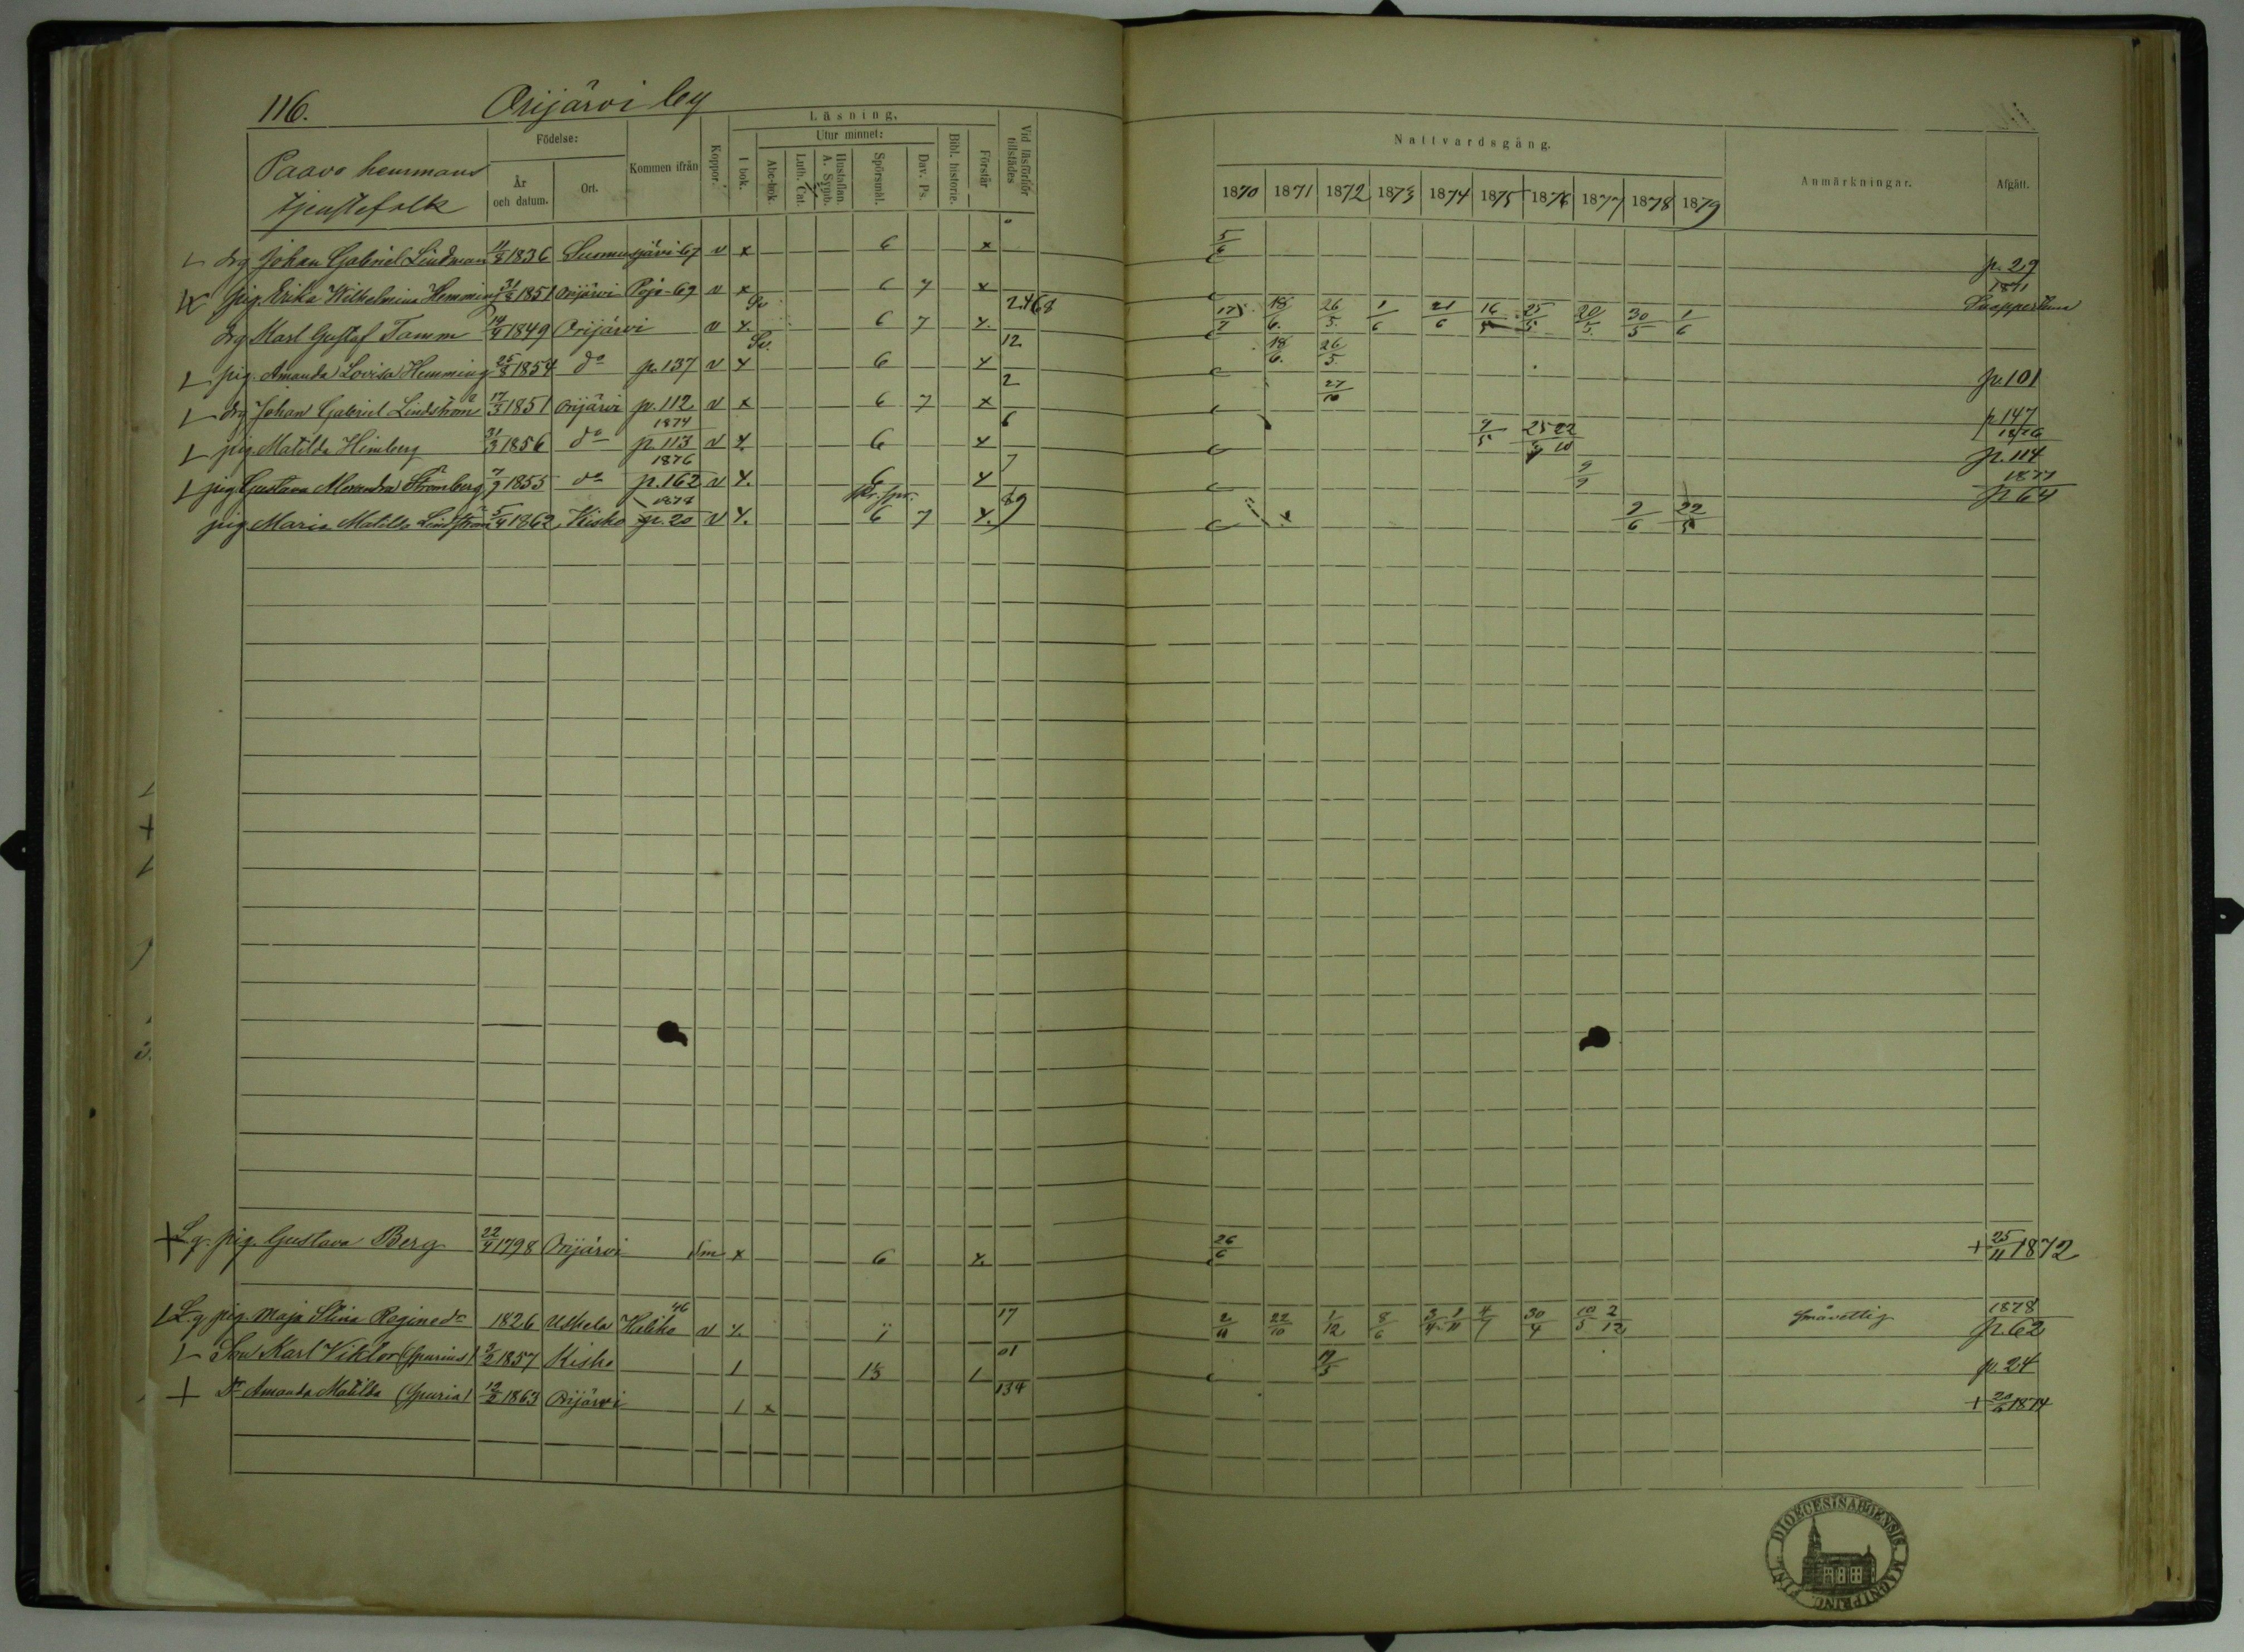 116. Orijärvi by
Paavo hemmans
tjenstefolk
Födelse:
År och datum.
Ort.
Kommen ifrån
Koppor.
Läsning.
I bok.
Utur minnet:
Abc-bok.
Luth. Cat.
Hustaflan. A. Symb.
Spörsmål.
Dav. Ps.
Bibl. historie.
Förstår
Vid läsförhör tillstädes
Nattvardsgång.
1870 1871 1872 1873 1874 1875 1876 1877 1878 1879
Anmärkningar.
Afgått.
drg Johan Gabriel Lindman 1836 Suomusjärvi 67 v x 6 x 5/6 p. 29
pig. Erika Wilhelmina Hemming 31/8 1851 Orijärvi Pojo-69 v x 6 7 x 1871
drg Karl Gustaf Tamm 19/4 1849 Orijärvi v x. 6 7 x. 2468 17/7 18/6. 26/5. 1/6 21/6 16/5 25/5 20/5. 30/5 1/6
pig. Amanda Lovisa Hemming 25/8 1854 do p. 137 v x 6 x 12 18/6. 26/5. p. 101
drg Johan Gabriel Lindström 17/3 1851 Orijärvi p. 112 v x 6 7 x 2 27/10 p. 147
pig Matilda Himberg 31/3 1856 do 1874 p. 113 v x. 6 x 6 7/5 1876 p. 114
pig Gustava Alexandra Strömberg 7/7 1855 do 1876 p. 162 v x. 6 x 7 9/9 1877 p. 64
pig Maria Matilda Lindström 5/4 1862 Kisko p. 20 v x. 6 7 x. 89 2/6 22/5
L.g. pig. Gustava Berg 22/4 1798 Orijärvi x 6 x. 26/6 + 25/11 1872
L.g. pig. Maja Stina Reginedr 1826 Uskela Halikko 46 v x. 17 2/11 22/10 1/12 8/6 4/7 30/4 10/5 2/12 1878 p. 62
Son Karl Viktor (spurius) 3/2 1857 Kisko 1 1 01 19/5 p. 24
Dr Amanda Matilda (spuria) 12/2 1863 Orijärvi 1 x 134 + 1874
DIOECESIS ABOENSIS. MAGNI PRINC. FINL.